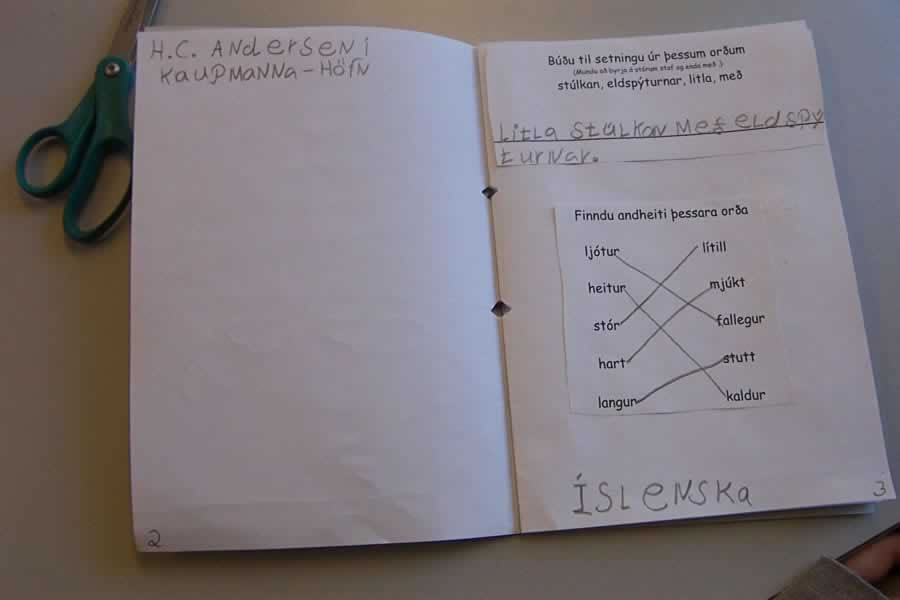 H.C. ANdERSEN í
KAUPMANNA-HÖfN
2
Búðu til setningu úr þessum orðum
(Mundu að byrja á stórum staf og enda með .)
stúlkan, eldspýturnar, litla, með
LitLa StúLKaN Með eLdSpý
tURNaR.
Finndu andheiti þessara orða
ljótur lítill
heitur mjúkt
stór fallegur
hart stutt
langur kaldur
ÍSLeNSKa
3